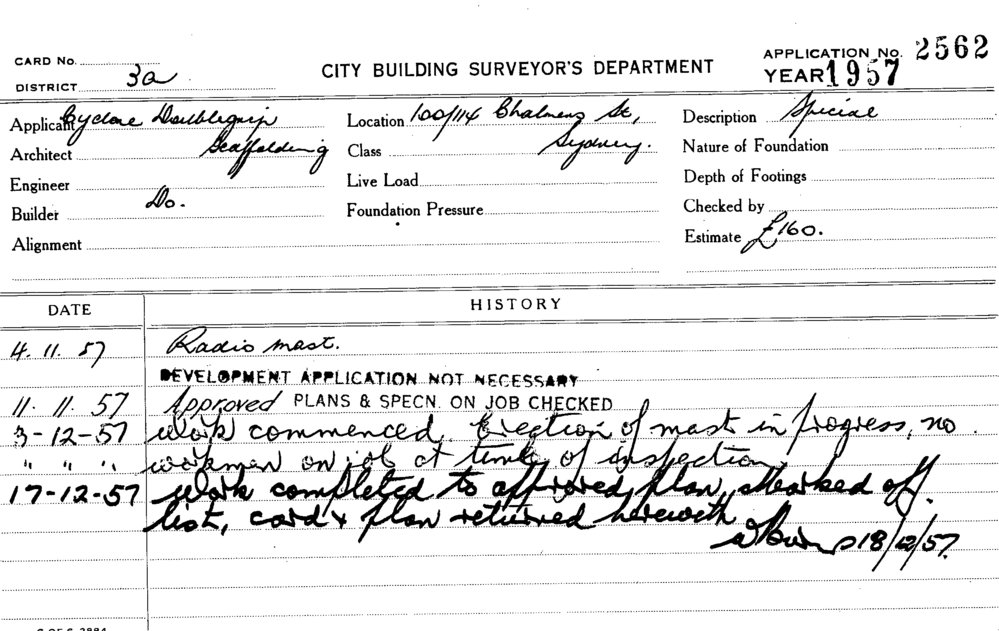 CARD No.
DISTRICT 3a
CITY BUILDING SURVEYOR'S DEPARTMENT
APPLICATION No. 2562
YEAR 1957
Applicant Cyclone Doublegrip
Scaffolding
Architect
Engineer
Builder Do.
Alignment
Location 100/114 Chalmers St,
Sydney.
Class
Live Load
Foundation Pressure
Description Special
Nature of Foundation
Depth of Footings
Checked by
Estimate £160.
DATE HISTORY
4. 11. 57 Radio mast.
DEVELOPMENT APPLICATION NOT NECESSARY
11. 11. 57 Approved PLANS & SPECN. ON JOB CHECKED
3-12-57 Work commenced. Erection of mast in progress, no
" " " workmen on job at time of inspection
17-12-57 Work completed to approved plan, marked off
list, card & plan returned herewith
18/12/57.